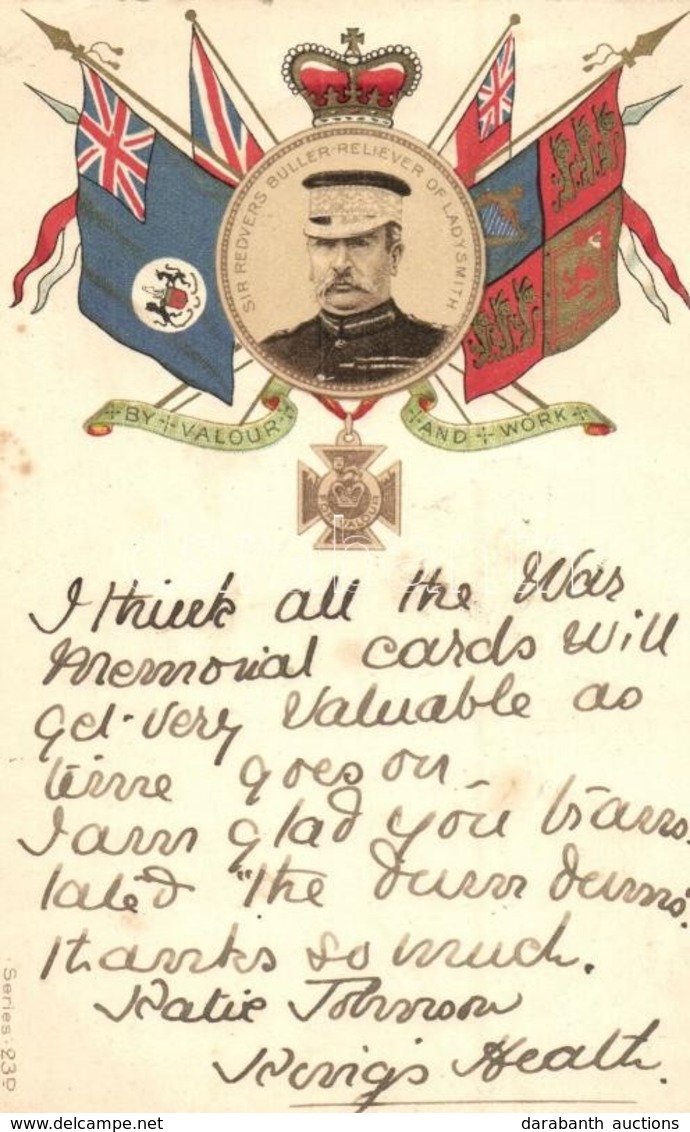 SIR REDVERS BULLER·RELIEVER OF LADYSMITH
BY VALOUR AND WORK
FOR VALOUR
I think all the War
Memorial cards will
get very valuable as
time goes on
I am glad you trans
lated "the dum dums".
thanks so much.
Katie Johnson
King's Heath.
Series: 23D
darabanth auctions